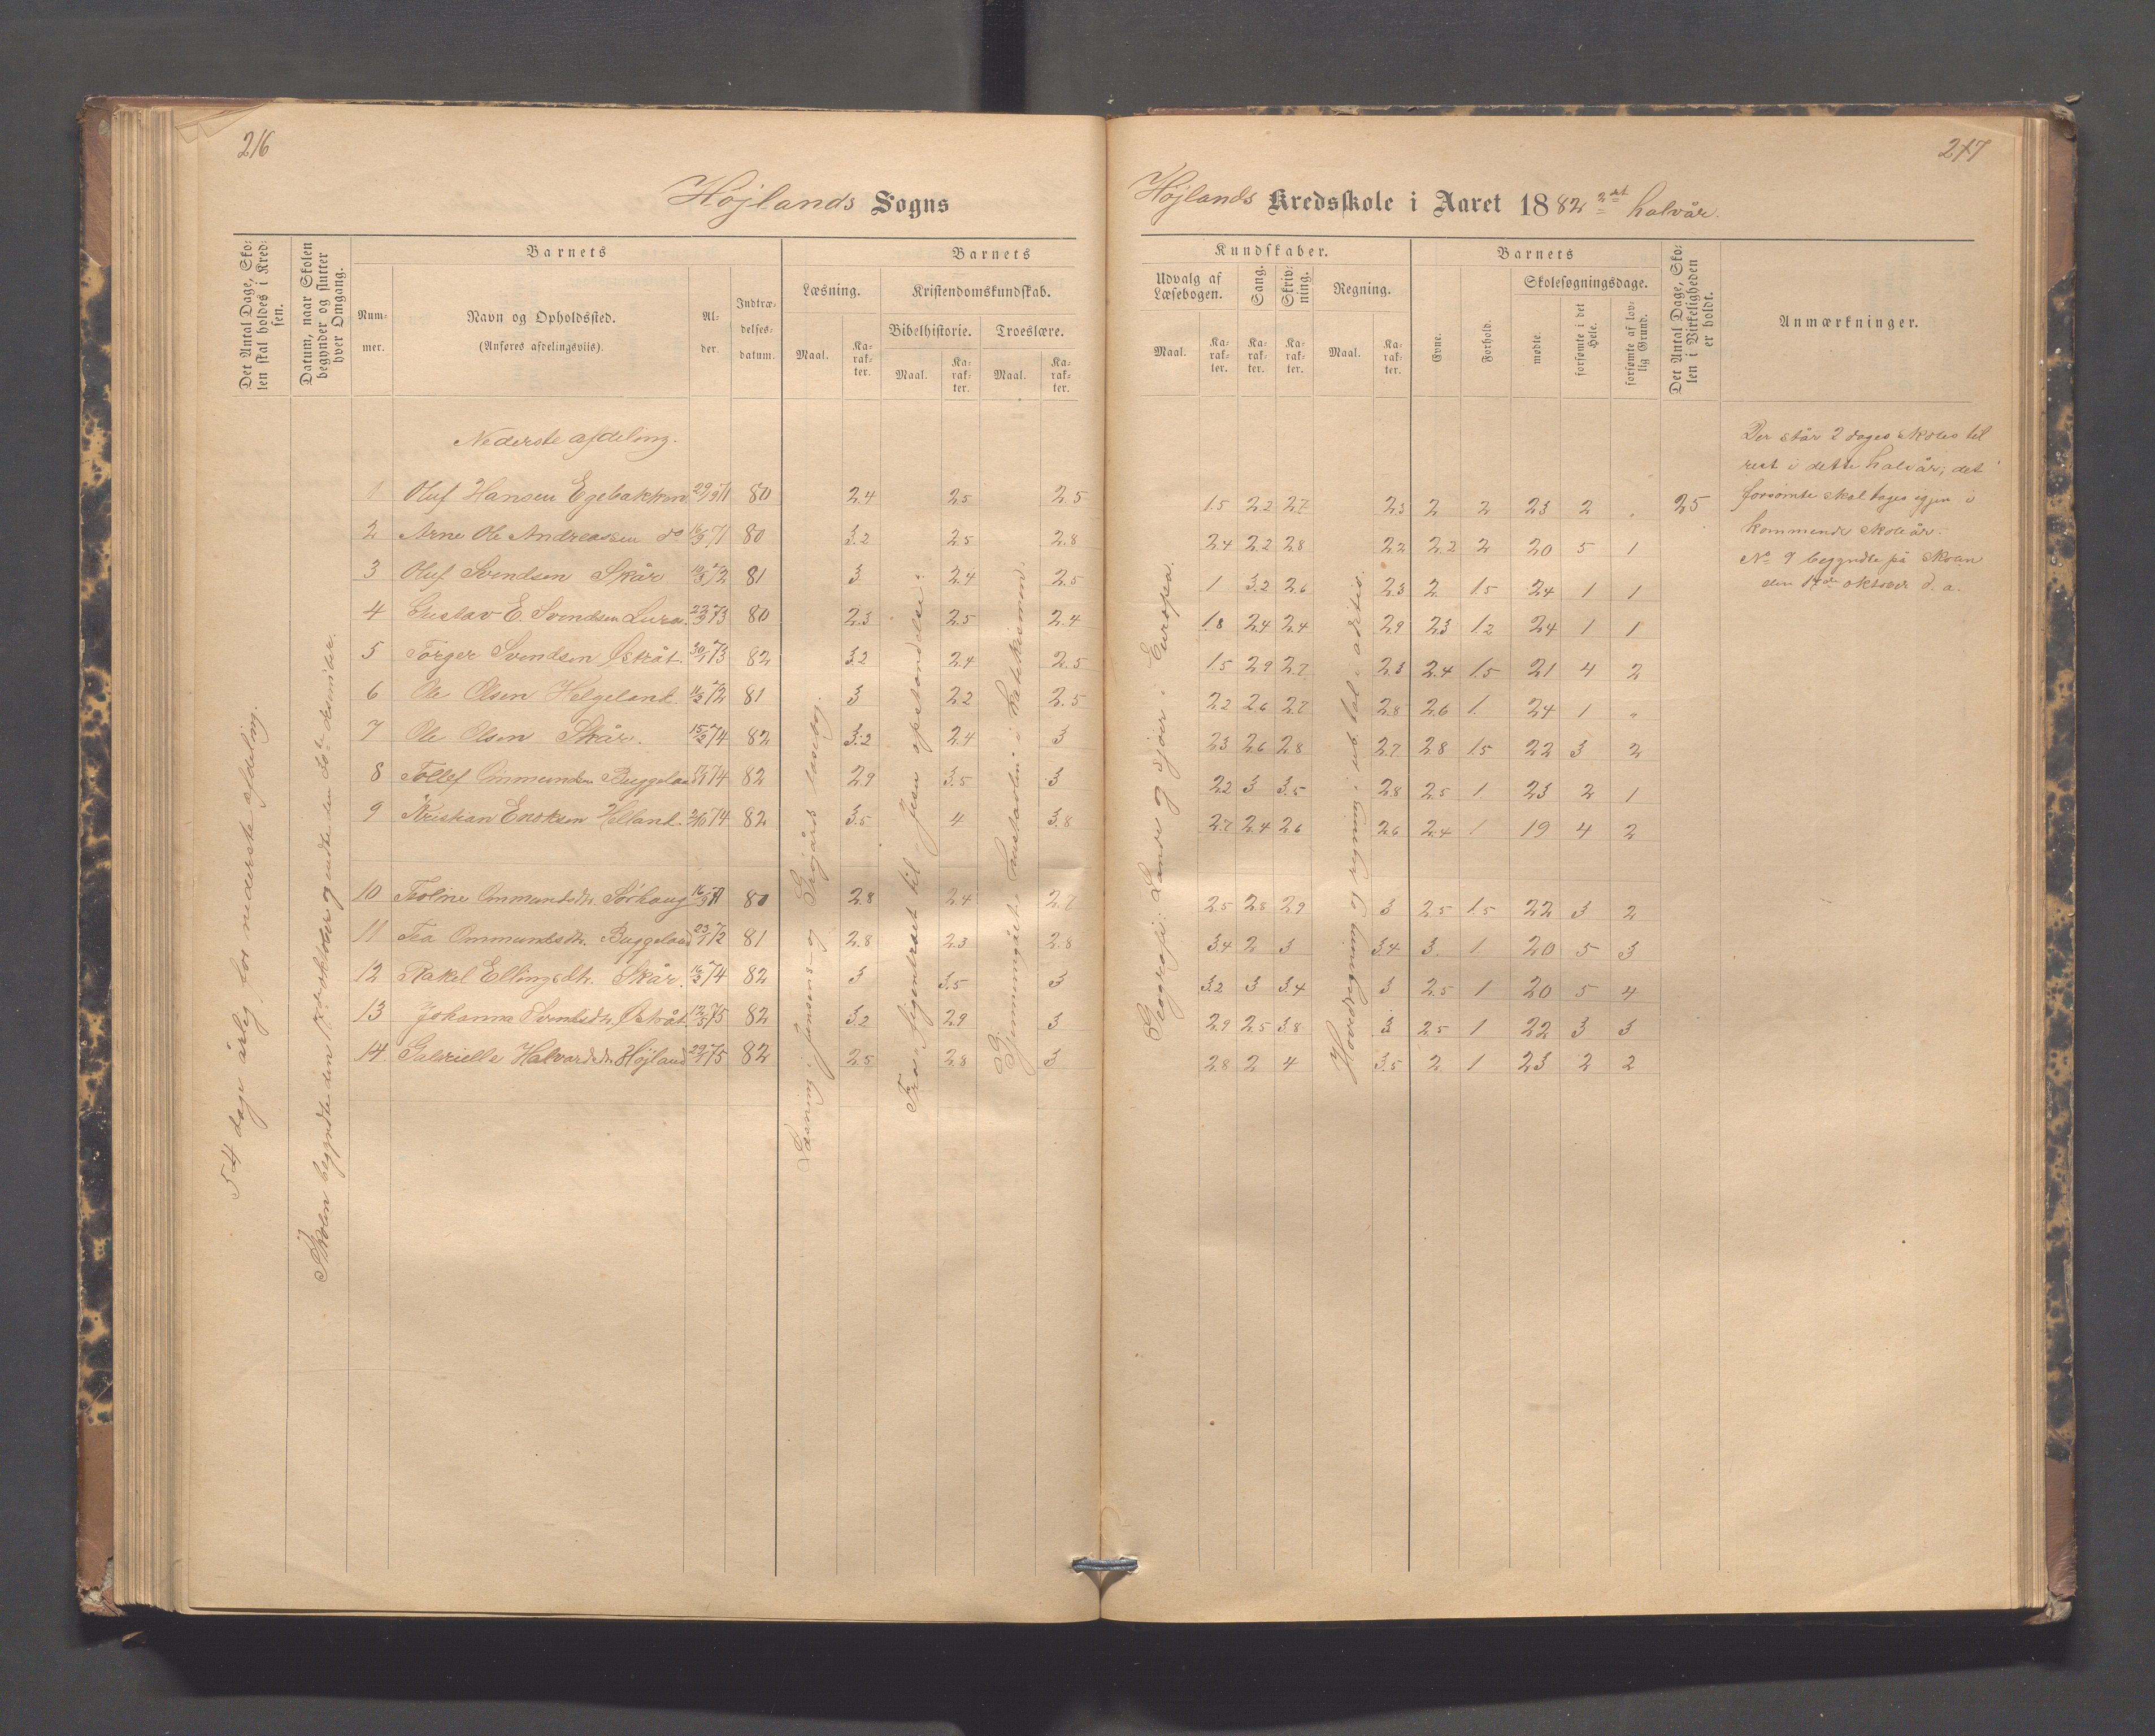 216
Højlands Sogns
Det Antal Dage, Sko-
len skal holdes i Kred-
sen.
Datum, naar Skolen
begynder og slutter
hver Omgang.
Barnets
Num-
mer.
Navn og Opholdssted.
(Anføres afdelingsviis).
Al-
der.
Indtræ-
delses-
datum.
Barnets
Læsning.
Kristendomskundskab.
Bibelhistorie.
Troeslære.
Maal.
Ka-
rak-
ter.
Maal.
Ka-
rak-
ter.
Maal.
Ka-
rak-
ter.
54 dage årlig for nederste afdeling.
Skolen begyndte den 17de oktober og endte den 20de desember.
Læsning: Jensens og læsebog.
Fra til Jesu opstandelse.
Gjennemgået: hustavlen i katekismen.
Nederste afdeling.
1 Oluf Hansen Egebakken 29/9 71 80 2.4 2.5 2.5
2 Arne Ole Andreassen do 16/9 71 80 3.2 2.5 2.8
3 Oluf Svendsen Skår 10/3 72 81 3 2.4 2.5
4 Gustav E. Svendsen Lura. 22/9 73 80 2.3 2.5 2.4
5 Torger Svendsen Østråt. 30/1 73 82 3.2 2.4 2.5
6 Ole Olsen Helgeland. 11/2 72 81 3 2.2 2.5
7 Ole Olsen Skår. 15/2 74 82 3.2 2.4 3
8 Tollef Ommundsn Buggeland 74 82 2.9 3.5 3
9 Kristian Enoksen Helland. 2/10 74 82 3.5 4 3.8
10 Ommundsdtr. Sørhaug 16/9 71 80 2.8 2.4 2.7
11 Tea Ommundsdtr. Buggeland 23/1 72 81 2.8 2.3 2.8
12 Rakel Ellingsdtr. Skår. 16/2 74 82 3 3.5 3
13 Johanna Svendsdtr. Østråt 12/5 75 82 3.2 2.9 3
14. Gabrielle Halvardsdtr Højland 29/1 75 82 2.5 2.8 3
217
Højlands Kredsskole i Aaret 1882 2det halvår.
Kundskaber.
Udvalg af
Læsebogen.
Sang.
Skriv-
ning.
Regning.
Maal.
Ka-
rak-
ter.
Ka-
rak-
ter.
Ka-
rak-
ter.
Maal.
Ka-
rak-
ter.
Barnets
Evne.
Forhold.
Skolesøgningsdage.
mødte.
forsømte i det
Hele.
forsømte af lov-
lig Grund.
Det Antal Dage, Sko-
len i Virkeligheden
er holdt.
Anmærkninger.
Geografi: Lande og sjøer i Europa.
Hovedregning og regning i ub. tal: adition.
1.5 2.2 2.7 2.3 2 2 23 2 „ 25
2.4 2.2 2.8 2.2 2.2 2 20 5 1
1 3.2 2.6 2.3 2 1.5 24 1 1
1.8 2.4 2.4 2.9 2.3 1.2 24 1 1
1.5 2.9 2.7 2.3 2.4 1.5 21 4 2
2.2 2.6 2.7 2.8 2.6 1 24 1 „
2.3 2.6 2.8 2.7 2.8 1.5 22 3 2
2.2 3 3.5 2.8 2.5 1 23 2 1
2.7 2.4 2.6 2.6 2.4 1 19 4 2
2.5 2.8 2.9 3 2.5 1.5 22 3 2
3.4 2 3 3.4 3 1 20 5 3
3.2 3 3.4 3 2.5 1 20 5 4
2.9 2.5 3.8 3 2.5 1 22 3 3
2.8 2 4 3.5 2 1 23 2 2
Der står 2 dages skoles til
rest i dette halvår; det
forsømte skal tages igjen i
kommende skoleår.
No 9 begyndte på skolen
den oktober d. a.